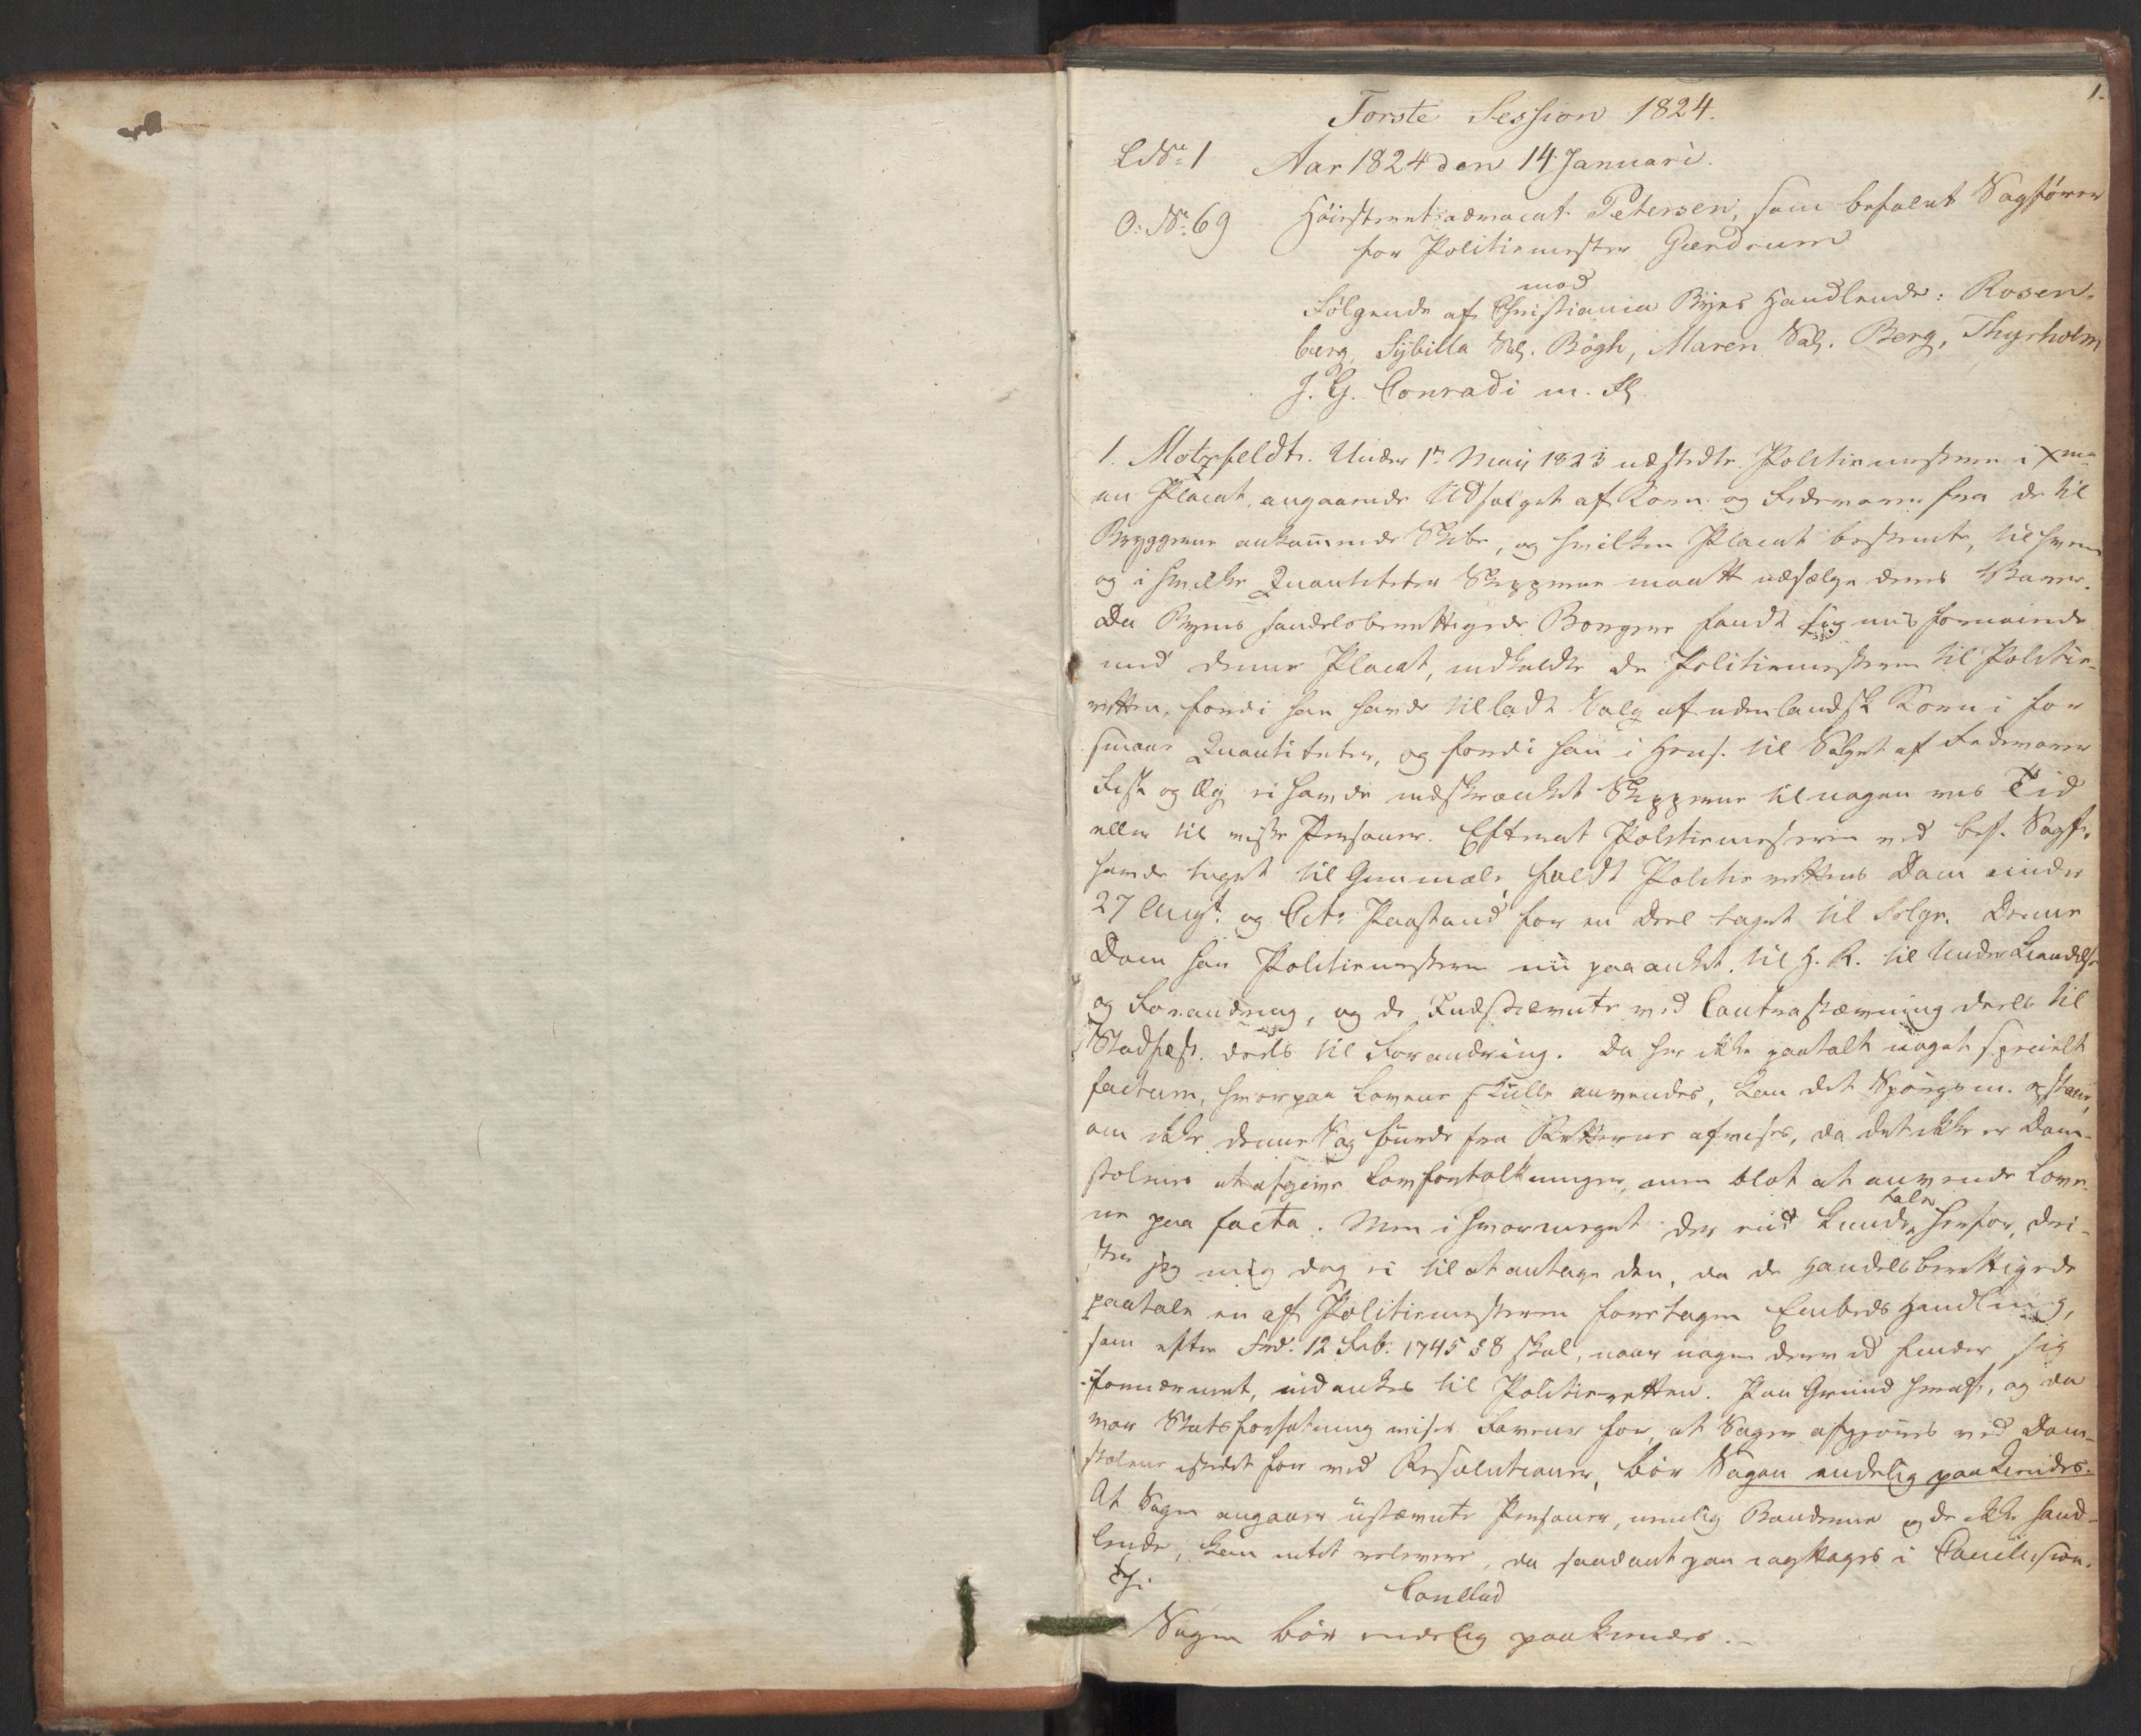 1.
Første Session 1824.
L. No 1 Aar 1824 den 14 Januari.
O: No 69 Høiesteretsadvocat Petersen, som befalet Sagfører
for Politiemester Gjerdrum
mod
Følgende af Christiania Byes Handlende: Rosen-
berg, Sybilla Sal. Bøgh, Maren Sal. Berg, Thyrholm
J. G. Conradi m. Fl.
1. Motzfeldt. Under 1n May 1823 udstedte Politiemesteren i Xnia
en Placat, angaaende Udsalget af Korn og Fedevarer fra de til
Bryggerne ankommende Skibe, og hvilken Placat bestemte, til hvem
og i hvilke Quantiteter Skipperne maatte udsælge deres Varer.
Da Byens handelsberettigede Borgere fandt sig misfornøiede
med denne Placat, indkaldte de Politiemesteren til Politie-
retten, fordi han havde tilladt Salg af udenlandsk Korn i for
smaae Quantiteter, og fordi han i Hens. til Salget af Fedevarer
Fisk og Æg ei havde indskrænket Skipperne til nogen vis Tid
eller til visse Personer. Efterat Politiemesteren ved bef. Sagf.
havde taget til Gjenmæle, faldt Politierettens Dom under
27 Augt. og Cit. Paastand for en Deel taget til Følge. Denne
Dom har Politiemesteren nu paaanket til H. R. til Underkiendelse
og Forandring, og de Indstevnte ved Contrastævning deels til
Stadfest. deels til Forandring. Da her ikke paatalt noget specielt
factum, hvorpaa Lovene skulle anvendes, kan det Spørgsm. opstaae,
om ikke denne Sag burde fra Retterne afvises, da det ikke er Dom-
stolenes at afgive Lovfortolkninger, men blot at anvende Love-
ne paa facta. Men i hvormeget der end kunde tale herfor, dri-
ster jeg mig dog ei til at antage den, da de Handelsberettigede
paatale en af Politiemesteren foretagen Embeds Handling,
som efter Frd. 12 Feb. 1745 § 8 skal, naar nogen derved finder sig
fornærmet, indankes til Politieretten. Paa Grund heraf, og da
vor Statsforfatning viser Faveur for, at Sager afgjøres ved Dom-
stolene istedet for ved Resolutioner, bør Sagen endelig paakiendes.
At Sagen angaaer ustævnte Personer, nemlig Bønderne og de ikke hand-
lende, kan intet relevere, da saadant paa iagttages i Conclusion.
Thi
Conclud
Sagen bør endelig paakiendes.